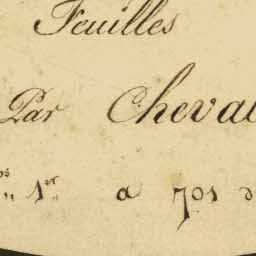 Feuilles
Par Cheval
1er a 701